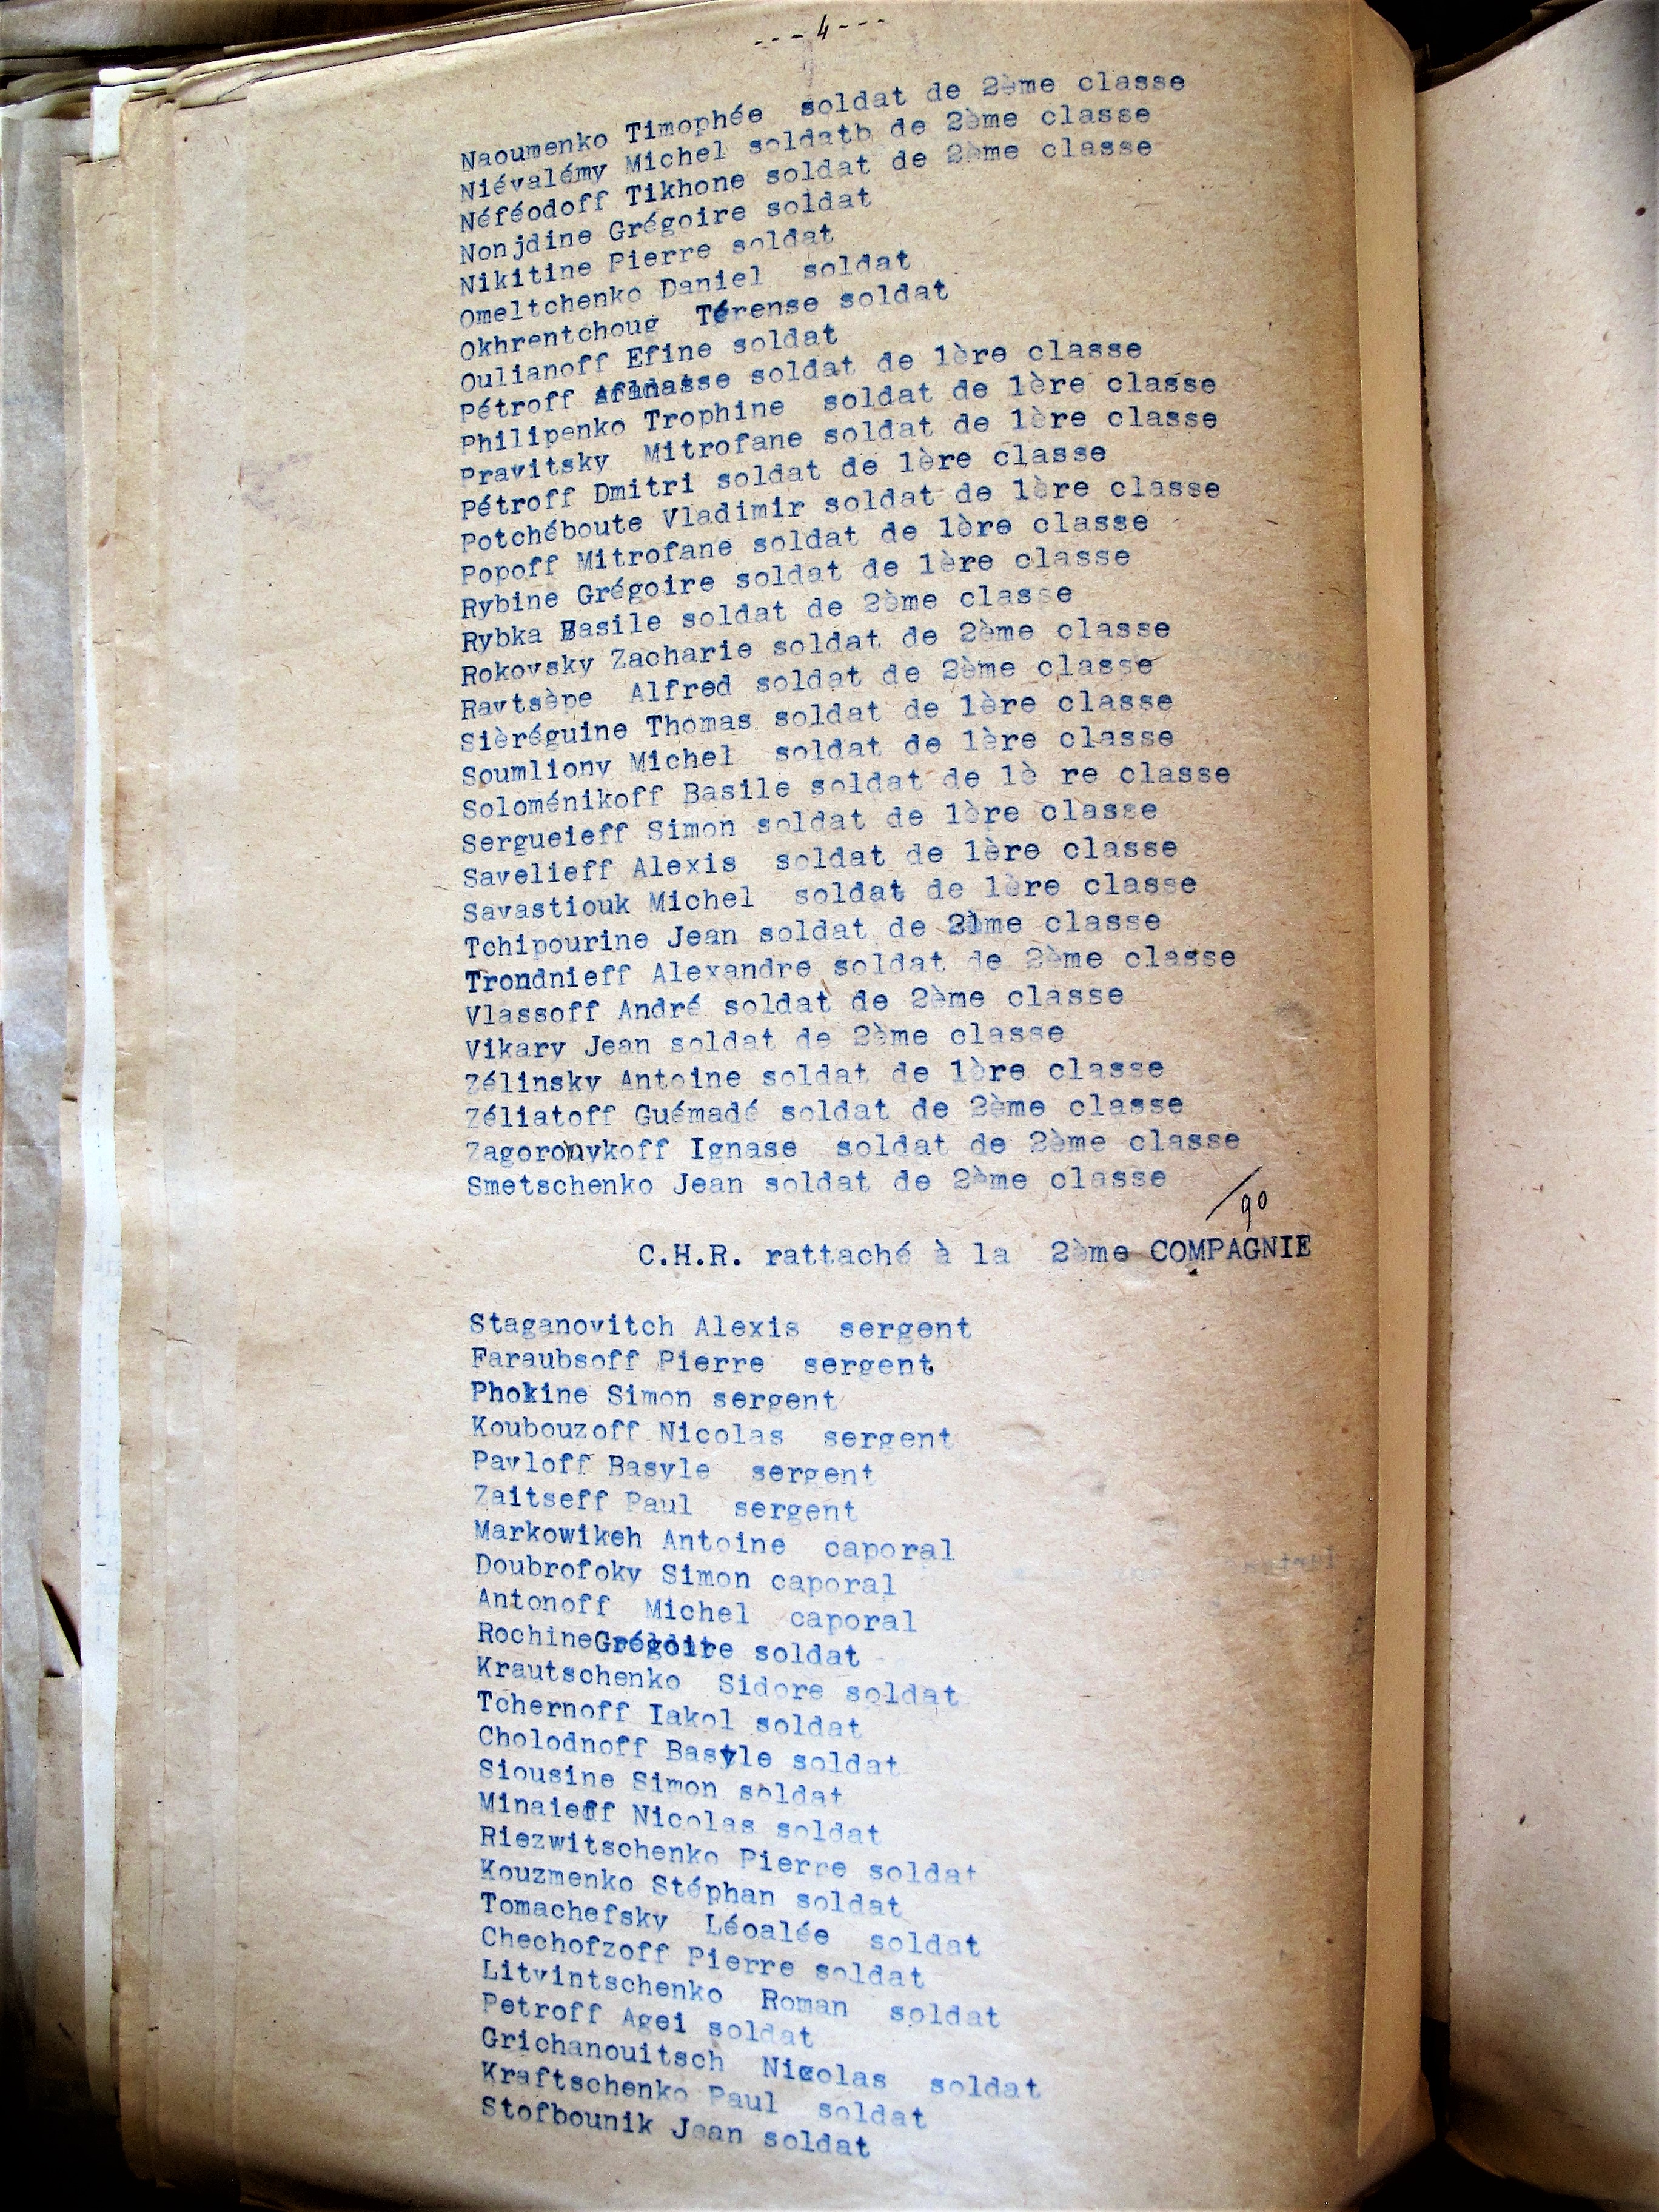 ---4---
Naoumenko Timophée soldat de 2ème classe
Niévalémy Michel soldatb de 2ème classe
Néféodoff Tikhone soldat de 2ème classe
Nonjdine Grégoire soldat
Nikitine Pierre soldat
Omeltchenko Daniel soldat
Okhrentchoug Térense soldat
Oulianoff Efine soldat
Pétroff Afanasse soldat de 1ère classe
Philipenko Trophine soldat de 1ère classe
Pravitsky Mitrofane soldat de 1ère classe
Pétroff Dmitri soldat de 1ère classe
Potchéboute Vladimir soldat de 1ère classe
Popoff Mitrofane soldat de 1ère classe
Rybine Grégoire soldat de 1ère classe
Rybka Basile soldat de 2ème classe
Rokovsky Zacharie soldat de 2ème classe
Ravtsèpe Alfred soldat de 2ème classe
Sièréguine Thomas soldat de 1ère classe
Soumliony Michel soldat de 1ère classe
Soloménikoff Basile soldat de 1è re classe
Sergueieff Simon soldat de 1ère classe
Savelieff Alexis soldat de 1ère classe
Savastiouk Michel soldat de 1ère classe
Tchipourine Jean soldat de 2ème classe
Trondnieff Alexandre soldat de 2ème classe
Vlassoff André soldat de 2ème classe
Vikary Jean soldat de 2ème classe
Zélinsky Antoine soldat de 1ère classe
Zéliatoff Guémadé soldat de 2ème classe
Zagorouykoff Ignase soldat de 2ème classe
Smetschenko Jean soldat de 2ème classe
90
C.H.R. rattaché à la 2ème COMPAGNIE
Staganovitch Alexis sergent
Faraubsoff Pierre sergent
Phokine Simon sergent
Koubouzoff Nicolas sergent
Pavloff Basyle sergent
Zaitseff Paul sergent
Markowikeh Antoine caporal
Doubrofoky Simon caporal
Antonoff Michel caporal
Rochine Grégoire soldat
Krautschenko Sidore soldat
Tchernoff Iakol soldat
Cholodnoff Basyle soldat
Siousine Simon soldat
Minaieff Nicolas soldat
Riezwitschenko Pierre soldat
Kouzmenko Stéphan soldat
Tomachefsky Léoalée soldat
Chechofzoff Pierre soldat
Litvintschenko Roman soldat
Petroff Agei soldat
Grichanouitsch Nicolas soldat
Kraftschenko Paul soldat
Stofbounik Jean soldat